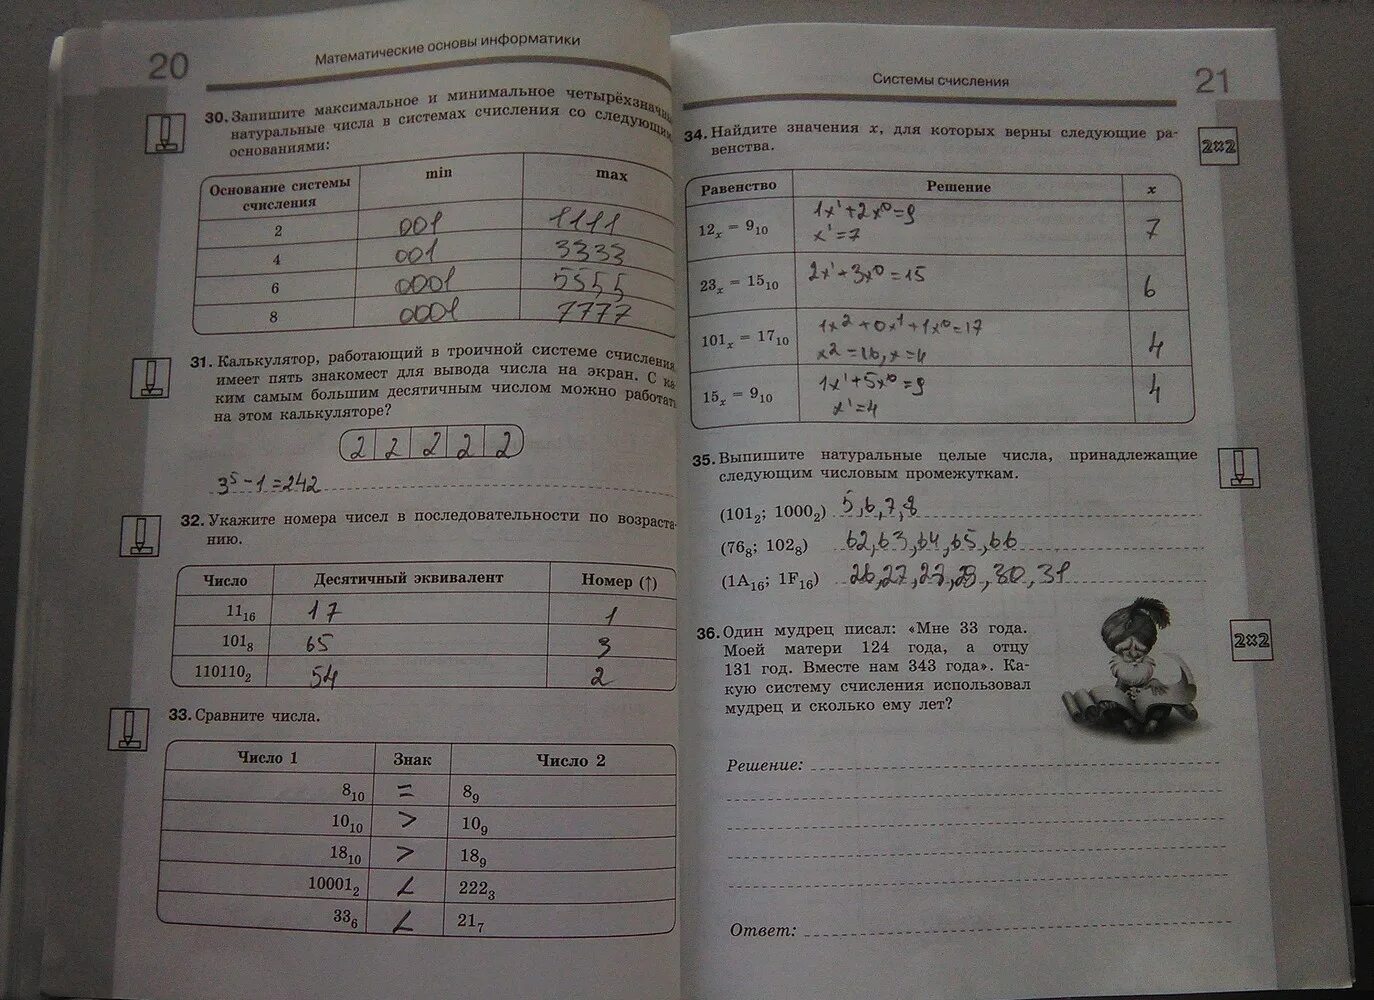 20
Математические основы информатики
30. Запишите максимальное и минимальное четырёхзначные
натуральные числа в системах счисления со следующими
основаниями:
Основание системы счисления min max
2 001 1111
4 001 3333
6 0001 5555
8 0001 7777
31. Калькулятор, работающий в троичной системе счисления,
имеет пять знакомест для вывода числа на экран. С ка-
ким самым большим десятичным числом можно работать
на этом калькуляторе?
2 2 2 2 2
3⁵ - 1 = 242
32. Укажите номера чисел в последовательности по возраста-
нию.
Число Десятичный эквивалент Номер (↑)
11₁₆ 17 1
101₈ 65 3
110110₂ 54 2
33. Сравните числа.
Число 1 Знак Число 2
8₁₀ = 8₉
10₁₀ > 10₉
18₁₀ > 18₉
10001₂ < 222₃
33₆ < 21₇
Системы счисления
21
34. Найдите значения x, для которых верны следующие ра-
венства.
2×2
Равенство Решение x
12ₓ = 9₁₀ 1x¹+2x⁰=9 7
x¹=7
23ₓ = 15₁₀ 2x¹+3x⁰=15 6
101ₓ = 17₁₀ 1x²+0x¹+1x⁰=17 4
x²=16, x=4
15ₓ = 9₁₀ 1x¹+5x⁰=9 4
x¹=4
35. Выпишите натуральные целые числа, принадлежащие
следующим числовым промежуткам.
(101₂; 1000₂) 5,6,7,8
(76₈; 102₈) 62,63,64,65,66
(1A₁₆; 1F₁₆) 26,27,28,29,30,31
36. Один мудрец писал: «Мне 33 года.
Моей матери 124 года, а отцу
131 год. Вместе нам 343 года». Ка-
кую систему счисления использовал
мудрец и сколько ему лет?
2×2
Решение:
Ответ: